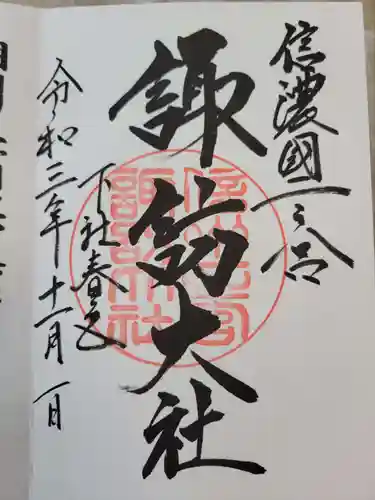 信濃國一之宮
諏訪大社
下社春宮
令和三年十一月一日